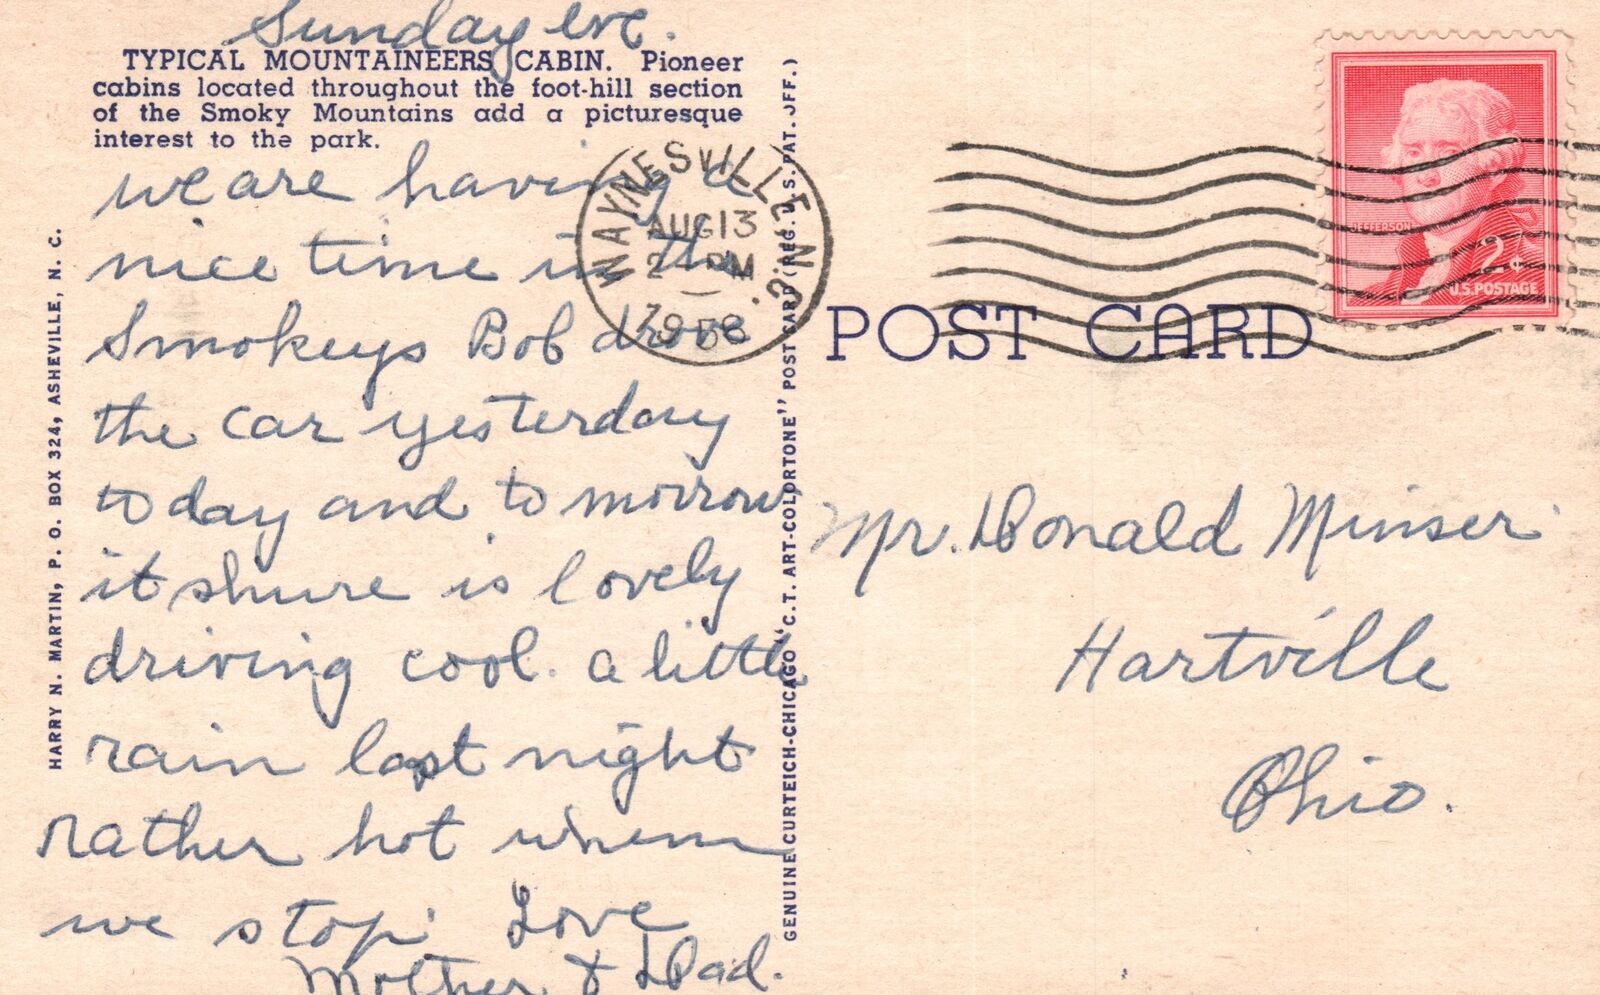 Sunday eve.
TYPICAL MOUNTAINEERS CABIN. Pioneer
cabins located throughout the foot-hill section
of the Smoky Mountains add a picturesque
interest to the park.
we are having a
nice time in the
Smokeys Bob drove
the car yesterday
today and to morrow
it shure is lovely
driving cool. a little
rain last night
Rather hot when
we stop. Love
Mother & Dad.
HARRY N. MARTIN, P. O. BOX 324, ASHEVILLE, N. C.
GENUINE CURTEICH-CHICAGO "C.T. ART-COLORTONE" POST CARD (REG. U.S. PAT. OFF.)
WAYNESVILLE N.C.
AUG 13
2 - PM
1958
POST CARD
JEFFERSON
2¢
U.S. POSTAGE
Mr. Donald Minser
Hartville
Ohio.